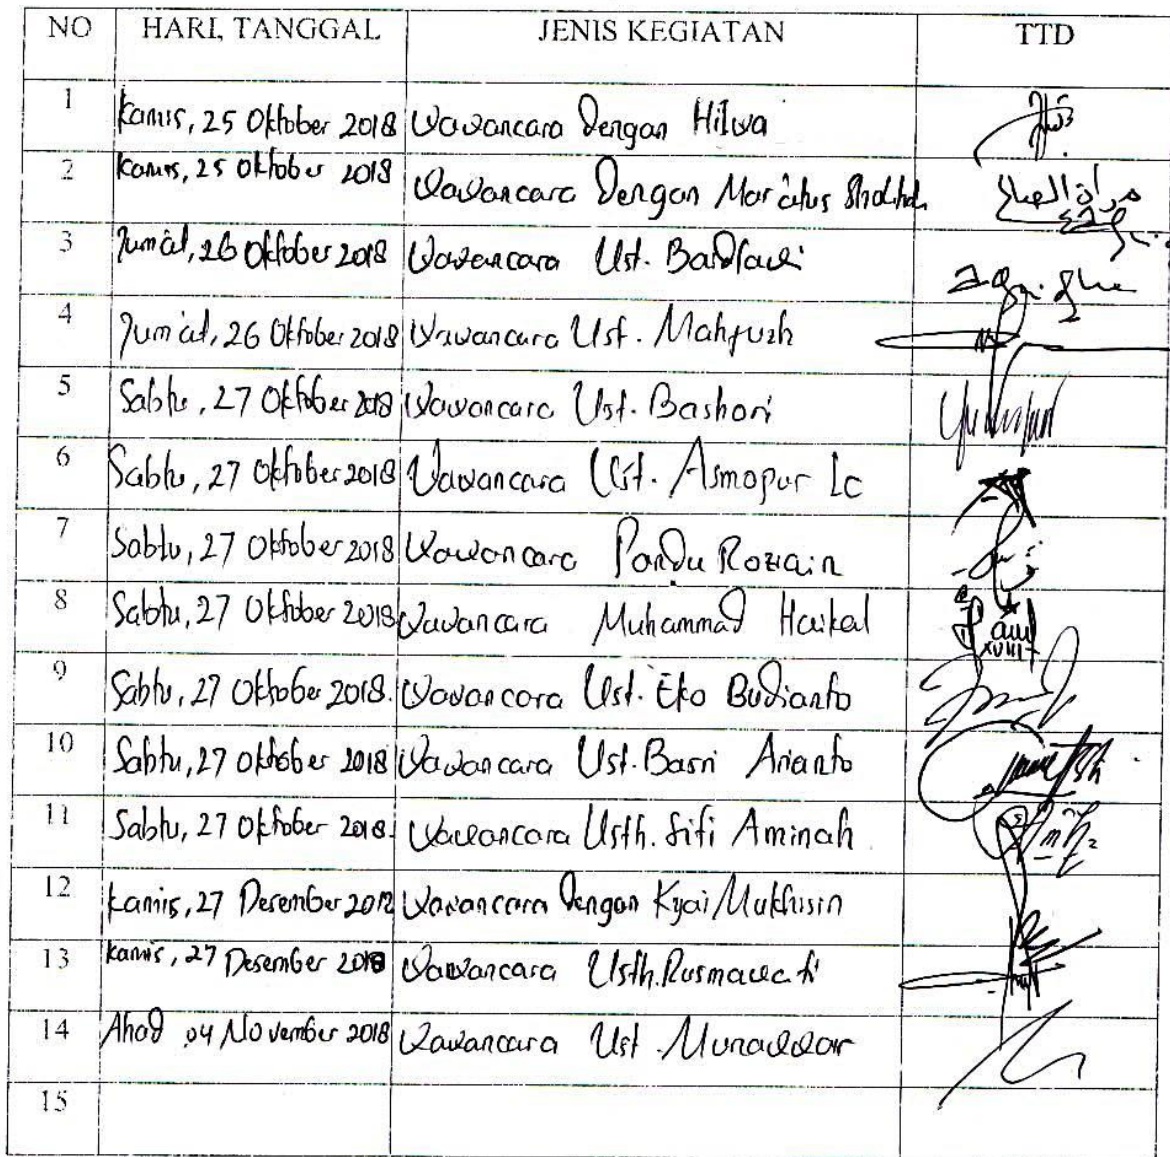 NO HARI, TANGGAL JENIS KEGIATAN TTD
1 Kamis, 25 Oktober 2018 Wawancara Dengan Hilwa
2 Kamis, 25 Oktober 2018 Wawancara Dengan Mar'atus Sholihah
3 Jum'at, 26 Oktober 2018 Wawancara Ust.
4 Jum'at, 26 Oktober 2018 Wawancara Ust. Mahfuzh
5 Sabtu, 27 Oktober 2018 Wawancara Ust. Bashori
6 Sabtu, 27 Oktober 2018 Wawancara Ust. Asmopur Lc
7 Sabtu, 27 Oktober 2018 Wawancara Pandu Roziain
8 Sabtu, 27 Oktober 2018 Wawancara Muhammad Haikal
9 Sabtu, 27 Oktober 2018. Wawancara Ust. Eko Budianto
10 Sabtu, 27 Oktober 2018 Wawancara Ust. Basri Arianto
11 Sabtu, 27 Oktober 2018. Wawancara Usth. Siti Aminah
12 Kamis, 27 Desember 2018 Wawancara Dengan Kyai Mukhisin
13 Kamis, 27 Desember 2018 Wawancara Usth. Rusmawati
14 Ahad 04 November 2018 Wawancara Ust. Munawwar
15